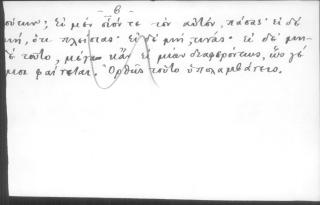 -β-
ούτων; Εἰ μέν οἷόν τε τὸν αὐτόν, πάσας· εἰ δὲ
μή, ὅτι πλείστας· εἰ δὲ μή, τινάς· εἰ δὲ μη-
δὲ τοῦτο, μέγα κἂν εἰ μίαν διαφερόντως, ὥς γέ
μοι φαίνεται. Ὀρθῶς τοῦτο ὑπολαμβάνεις.